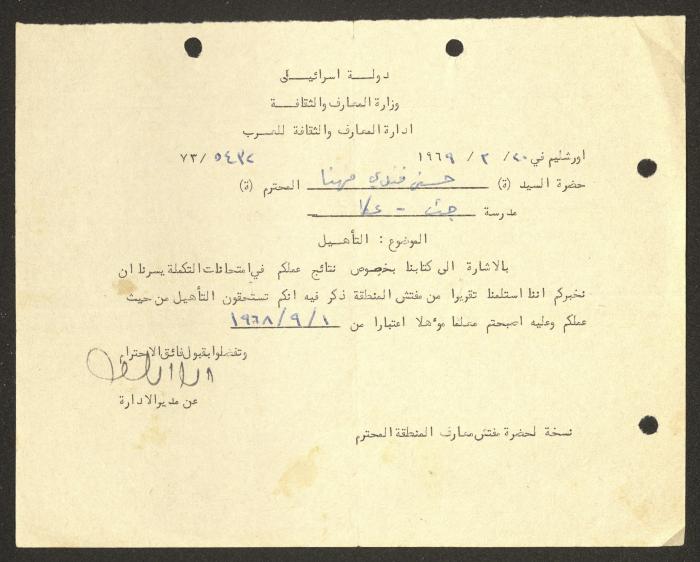 دولة اسرائيل
وزارة المعارف والثقافة
ادارة المعارف والثقافة للعرب
اورشليم في ٢٠/ ٢ / ١٩٦٩ ٥٤٣٢ /٧٣
حضرة السيد (ة) حسني فندي مهنا المحترم (ة)
مدرسة جث - عكا
الموضوع : التأهيل
بالاشارة الى كتابنا بخصوص نتائج عملكم في امتحانات التكملة يسرنا ان
نخبركم اننا استلمنا تقريرا من مفتش المنطقة ذكر فيه انكم تستحقون التأهيل من حيث
عملكم وعليه اصبحتم معلما مؤهلا اعتبارا من ١٩٦٨/٩/١
وتفضلوا بقبول فائق الاحترام
عن مدير الادارة
نسخة لحضرة مفتش معارف المنطقة المحترم